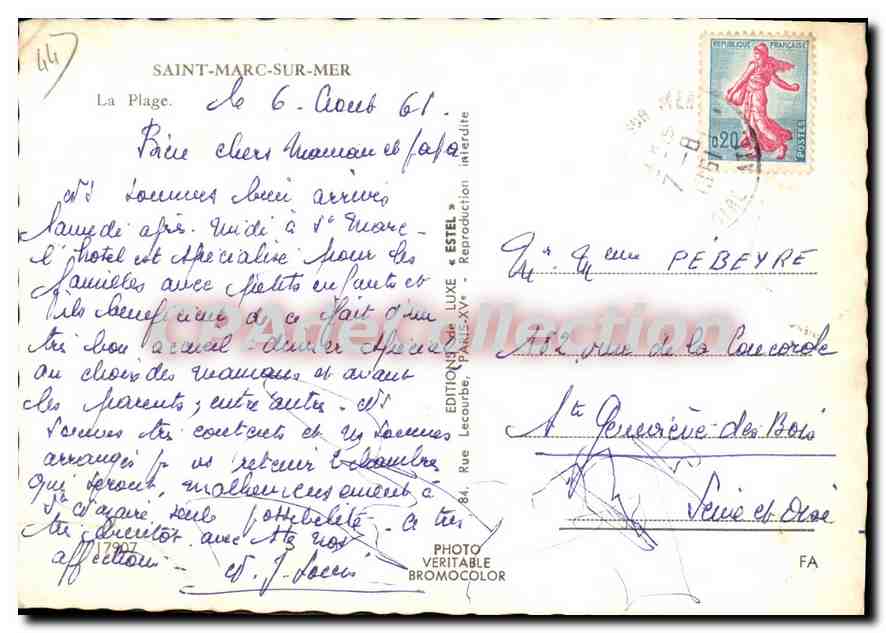 44
SAINT-MARC-SUR-MER
La Plage.
le 6 - Aout 61.
Bien chers Maman et papa
Ns sommes bien arrivés
Samedi après. midi à St Marc -
l'hotel est spécialisé pour les
familles avec petits enfants et
ils beneficient de ce fait d'un
très bon accueil - diner spécial
au choix des mamans et avant
les parents, entre autre. Ns
sommes très contents et ns sommes
arrangés pr vs retenir 2 chambres
qui seront, malheureusement à
St seule possibilité. A très
bientot avec tte nos
affections -
J.
17907
EDITIONS de LUXE « ESTEL »
84, Rue Lecourbe, PARIS-XVe - Reproduction interdite
PHOTO
VERITABLE
BROMOCOLOR
REPUBLIQUE FRANÇAISE
0,20
POSTES
7 -8
1961
Mr. Meme PEBEYRE
162, rue de la Concorde
Ste Geneviève des Bois
Seine et Oise
FA
CPArielCollection